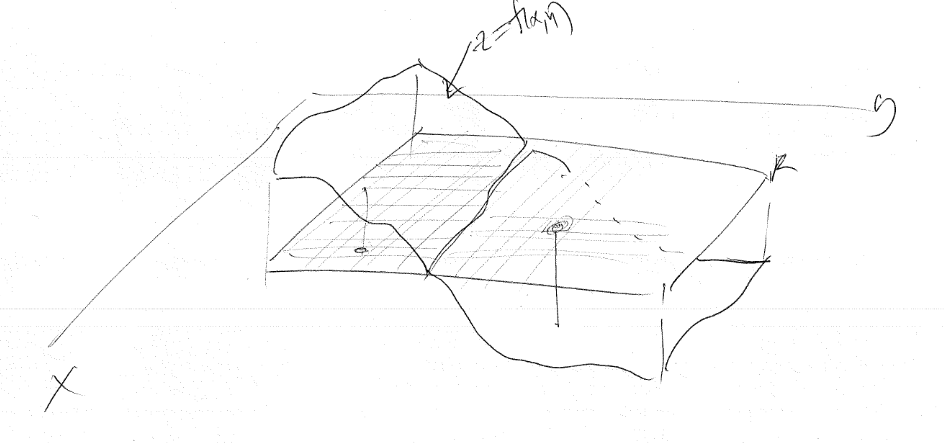 z = f(x,y)
y
R
x